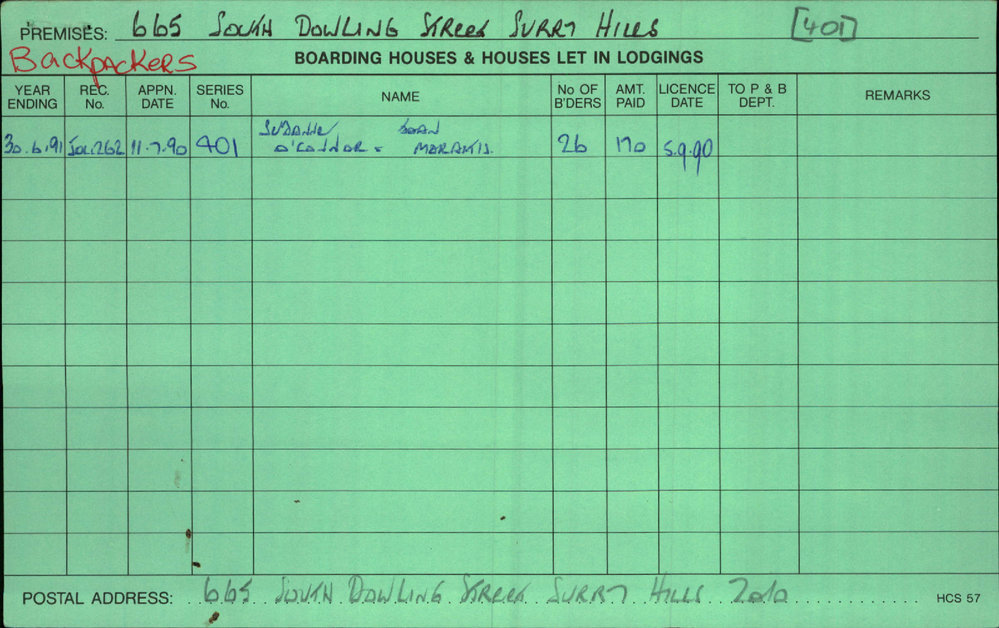 PREMISES: 665 SOUTH DOWLING STREET SURRY HILLS [401]
BACKPACKERS
BOARDING HOUSES & HOUSES LET IN LODGINGS
YEAR ENDING REC. No. APPN. DATE SERIES No. NAME No OF B'DERS AMT. PAID LICENCE DATE TO P & B DEPT. REMARKS
SUZANNE
30.6.91 262 11.7.90 401 O'CONNOR - 26 170 5.9.90
POSTAL ADDRESS: 665 SOUTH DOWLING STREET SURRY HILLS 2010 HCS 57